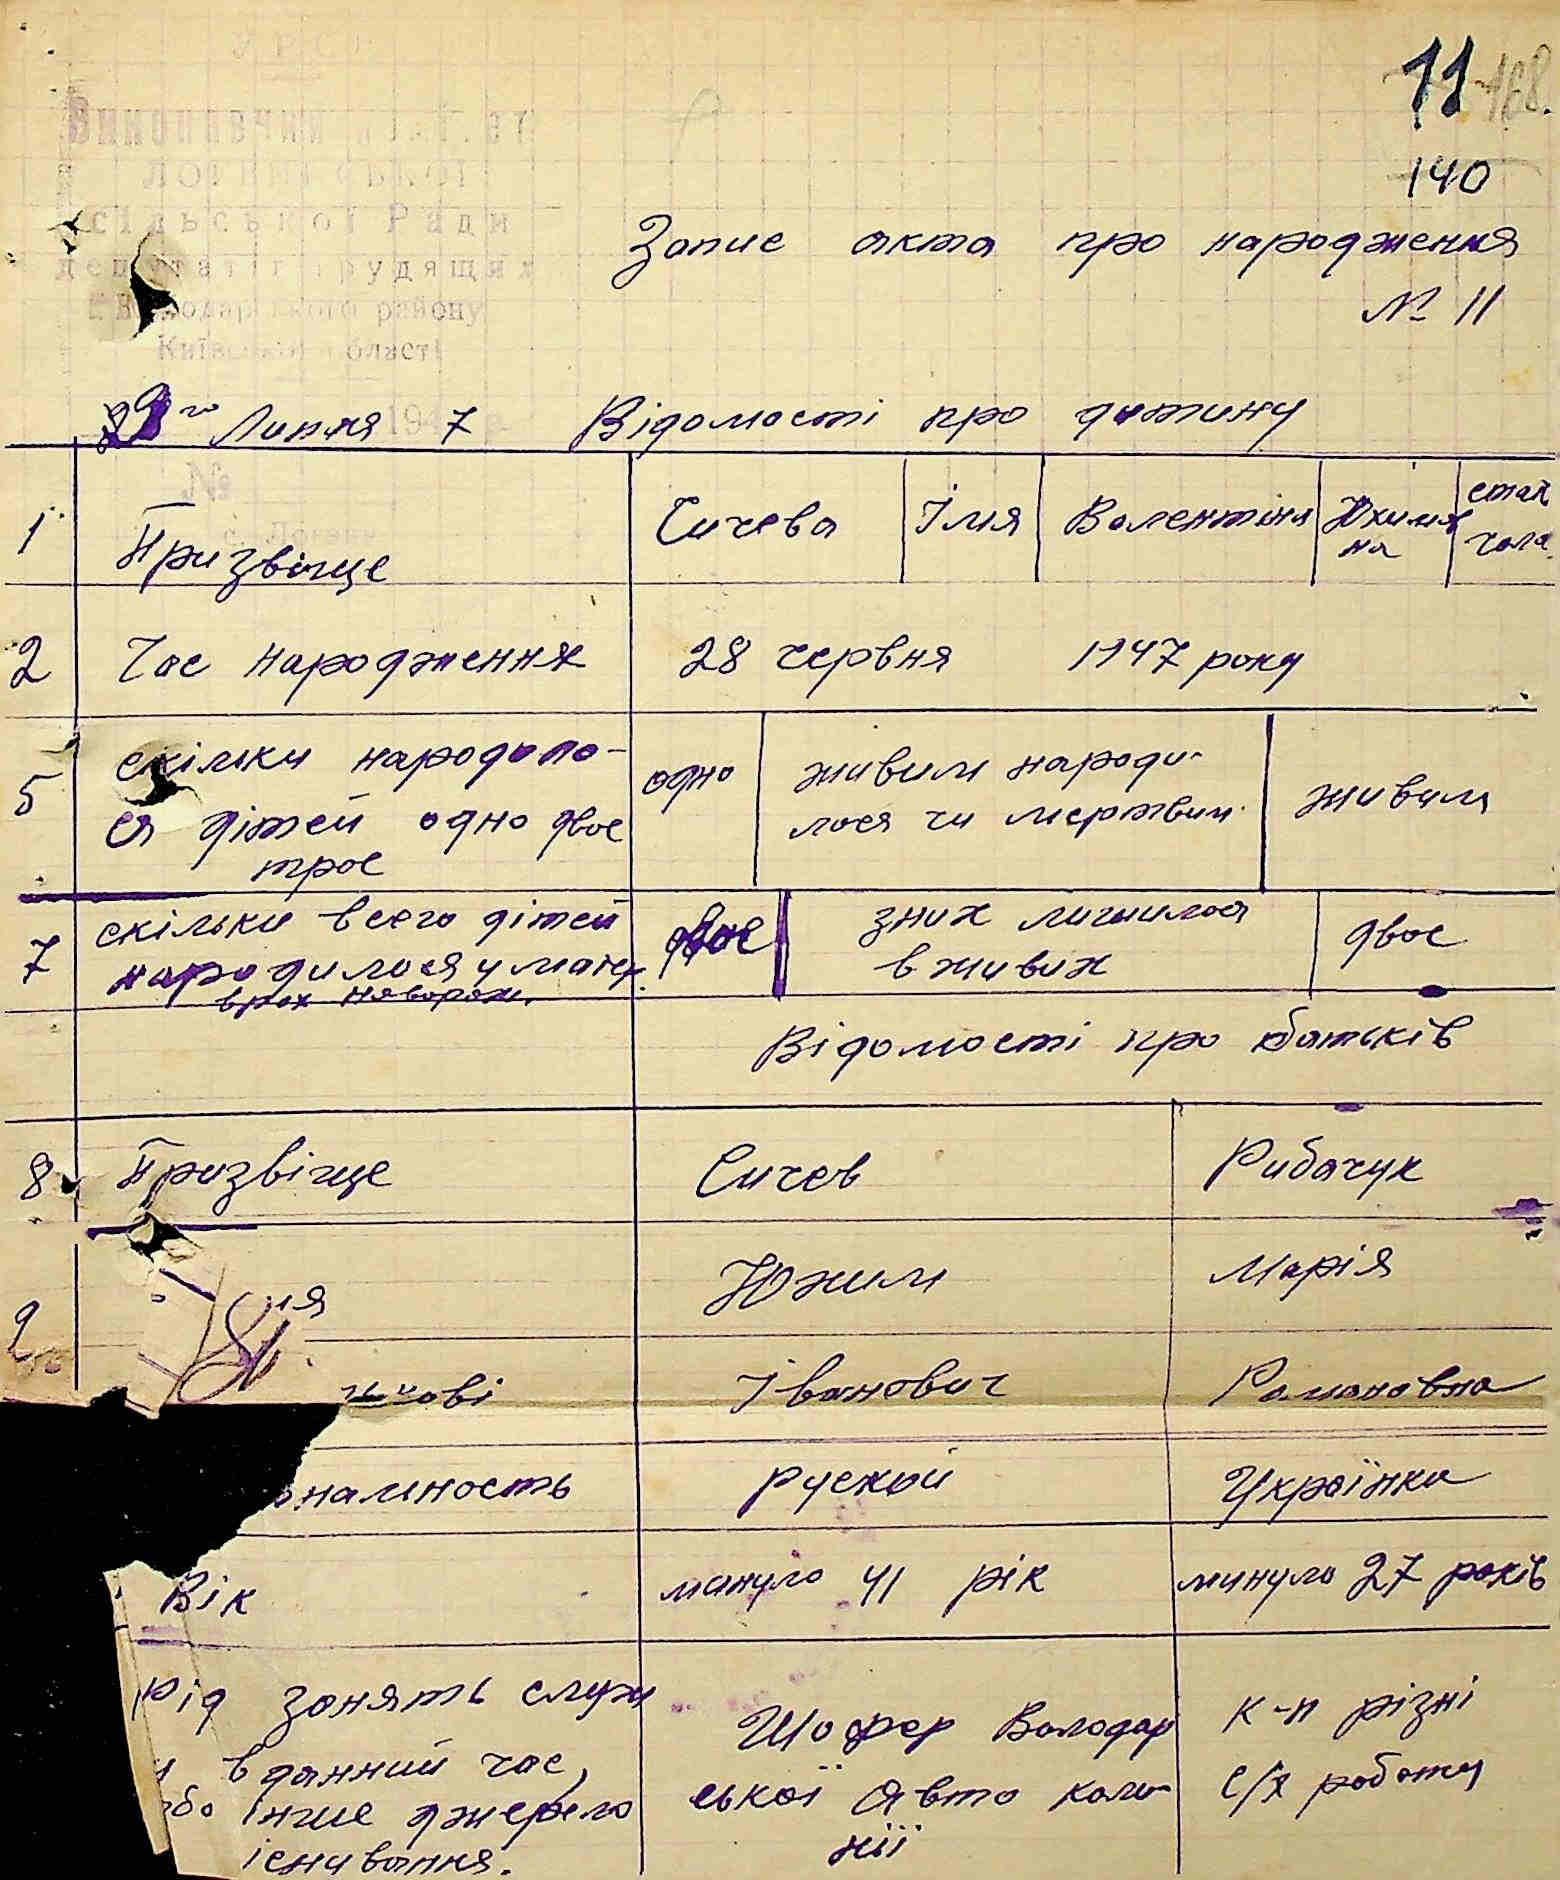 УРСР
Виконавчий
сільської Ради
депутатів трудящих
Володарського району
Київської області
11 168.
140
Запис акта про народження
№ 11
29го Липня 1947 Відомості про дитину
№
1 Призвіще Сичева Імя Валентіна Юхимівна стать
2 Час народження 28 червня 1947 року
5 скільки народило-
ся дітей одно двоє
троє
одно
живим народи-
лося чи мертвим
живим
7 скільки всего дітей
народилося у матер.
врах новорож.
двоє
зних лишилося
в живих
двоє
Відомості про батьків
8 Призвіще Сичев Рибачук
9 імя Юхим Марія
Іванович Романовна
нальность руской Українка
Вік минуло 41 рік минуло 27 років
Рід занять служ
в данний час,
або інше джерело
існування.
Шофер Володар
ської авто коло-
нії
к-п різні
с/х роботи